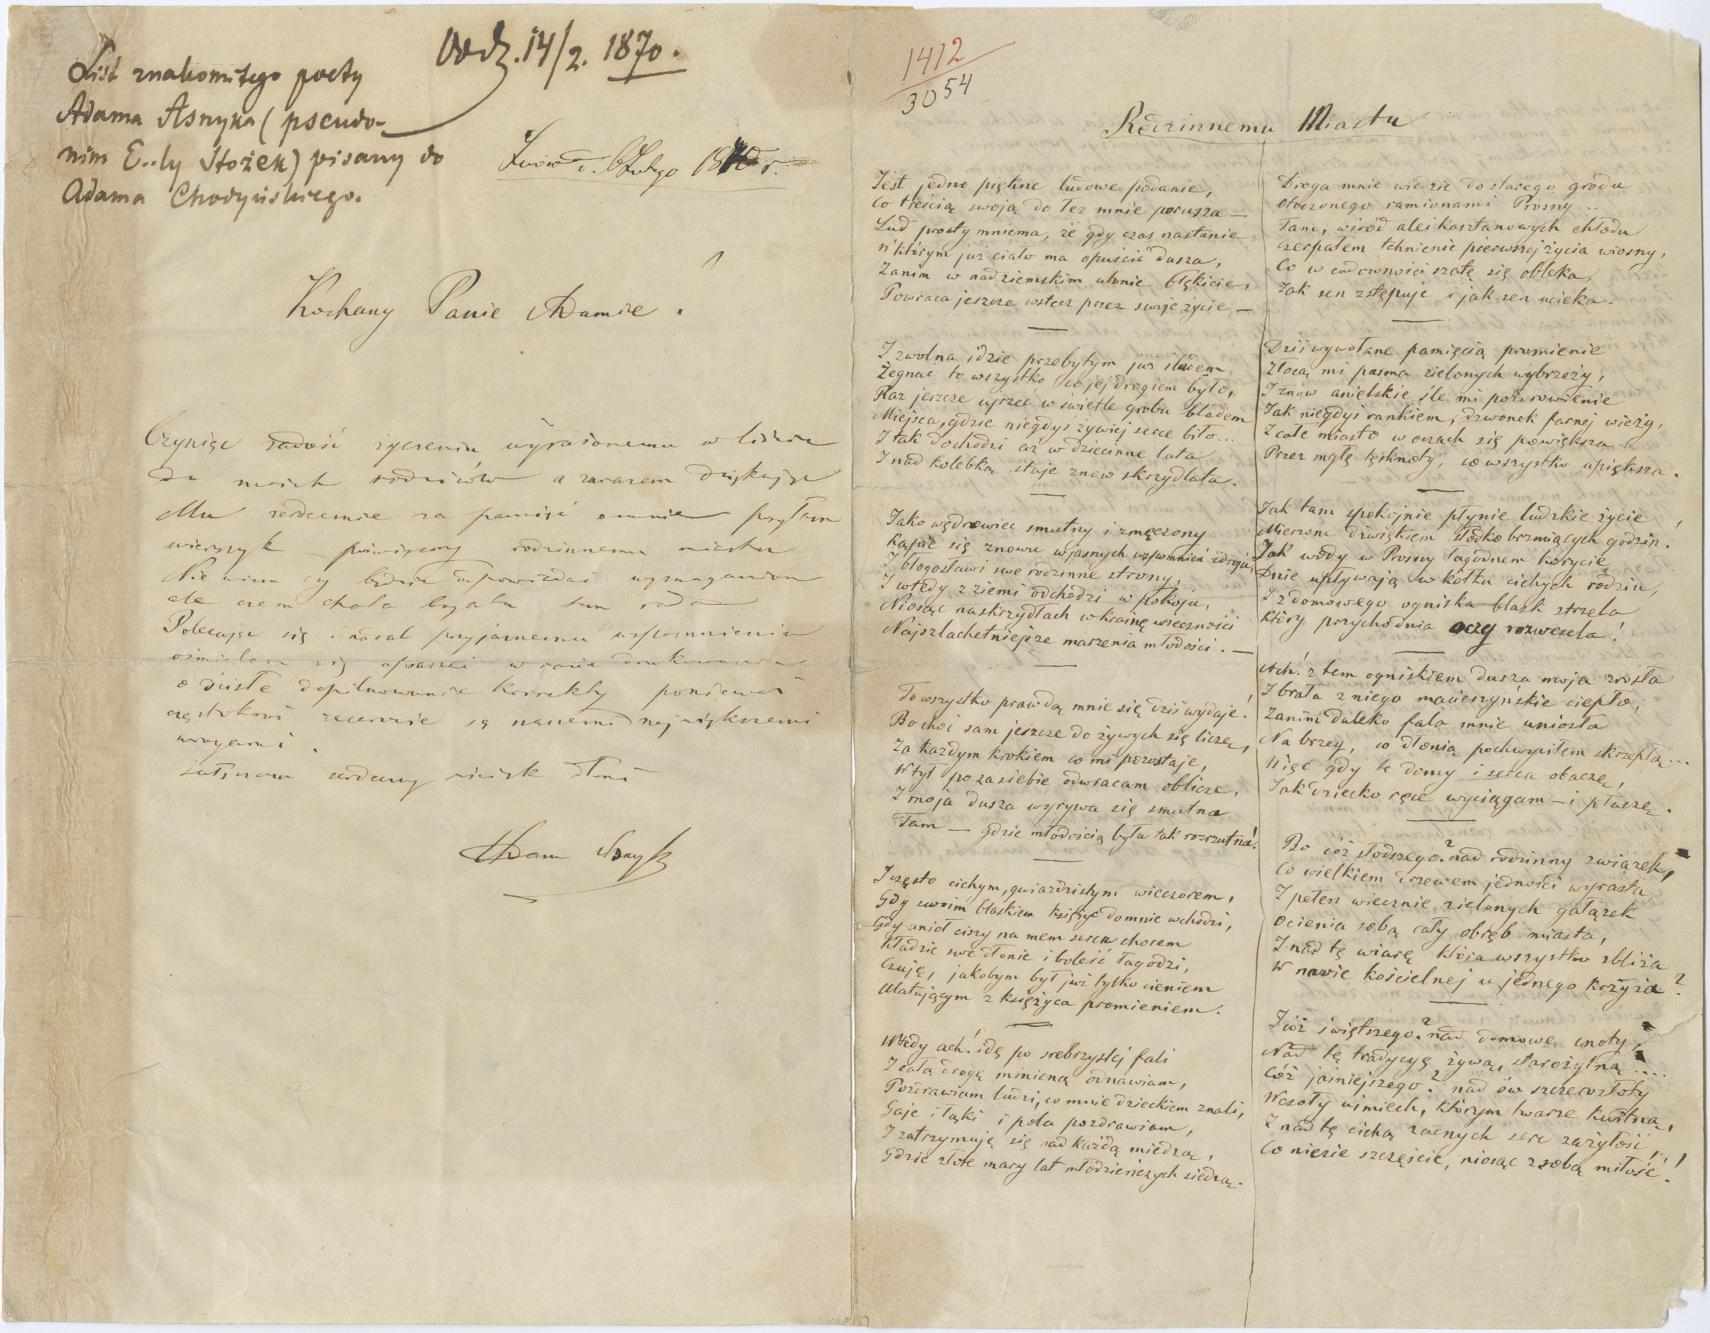 Odp. 14/2. 1870.
List znakomitego poety
Adama Asnyka (pseudo-
nim E..ly Stożek) pisany do
Adama Chodyńskiego.
Lwów d. 6 Lutego 1870 r.
Kochany Panie Adamie!
Czyniąc zadość życzeniu wyrażonemu w liście
do moich rodziców a zarazem dziękując
Mu serdecznie za pamięć o mnie przesyłam
wierszyk poświęcony rodzinnemu miastu
Nie wiem czy będzie odpowiadać wymaganiom
ale czem chata bogata tem rada
Polecając się nadal przyjaznemu wspomnieniu
ośmielam się upraszać w razie drukowania
o ścisłe dopilnowanie korrekty ponieważ
zecernie są naszemi największemi
wrogami.
serdeczny uścisk dłoni
Adam Asnyk
1412
3054
Rodzinnemu Miastu
Jest jedno piękne ludowe podanie,
Co treścią swoją do łez mnie porusza —
Lud prosty mniema, że gdy czas nastanie
W którym już ciało ma opuścić dusza,
Zanim w nadziemskim utonie błękicie,
Powraca jeszcze wstecz przez swoje życie —
I zwolna idzie przebytym już śladem
Żegnać to wszystko co jej drogiem było,
Raz jeszcze ujrzeć w świetle grobu bladem
Miejsca, gdzie niegdyś żywiej serce biło...
I tak dochodzi aż w dziecinne lata
I nad kolebką staje znów skrzydlata.
Jako wędrowiec smutny i zmęczony
Kąpie się znowu w jasnych wspomnień zdroju,
I błogosławi swe rodzinne strony,
I wtedy z ziemi odchodzi w pokoju,
Niosąc na skrzydłach w krainę wieczności
Najszlachetniejsze marzenia młodości. —
To wszystko prawdą mnie się dziś wydaje!
Bo choć sam jeszcze do żywych się liczę,
Za każdym krokiem co mi pozostaje,
W tył poza siebie odwracam oblicze,
I moja dusza wyrywa się smutna
Tam — gdzie młodością była tak rozrzutna!
I często cichym, gwiaździstym wieczorem,
Gdy swoim blaskiem księżyc do mnie wchodzi,
Gdy anioł ciszy na mem sercu chorem
Kładzie swe dłonie i boleść łagodzi,
Czuję, jakobym był już tylko cieniem
Ulatującym z księżyca promieniem.
Wtedy ach! idę po srebrzystej fali
I całą drogę minioną odnawiam,
Pozdrawiam ludzi, co mnie dzieckiem znali,
Gaje i łąki i pola pozdrawiam,
I zatrzymuję się nad każdą miedzą,
Gdzie złote mary lat młodzieńczych siedzą.
Droga mnie wiedzie do starego grodu
Otoczonego ramionami Prosny...
Tam, wśród alei kasztanowych chłodu
Czerpałem tchnienie pierwszej życia wiosny,
Co w cudowności szatę się obleka
Jak sen zstępuje i jak sen ucieka.
Dziś wywołane pamięcią promienie
Złocą mi pasma zielonych wybrzeży,
I znów anielskie śle mi pozdrowienie
Jak niegdyś rankiem, dzwonek farnej wieży,
I całe miasto w oczach się powiększa
Przez mgłę tęsknoty, co wszystko upiększa.
Jak tam spokojnie płynie ludzkie życie!
Mierzone dźwiękiem słodko brzmiących godzin.
Jak wody w Prosny łagodnem korycie
Dnie upływają w kółku cichych rodzin,
I z domowego ogniska blask strzela
Który przychodnia oczy rozwesela!
Ach! z tem ogniskiem dusza moja zrosła
I brała z niego macierzyńskie ciepło,
Zanim daleko fala mnie uniosła
Na brzeg, co dłonią pochwyciłem skrzepłą...
Więc gdy te domy i serca obaczę,
Jak dziecko ręce wyciągam — i płaczę.
Bo cóż słodszego? nad rodzinny związek,
Co wielkiem drzewem jedności wyrasta
I pełen wiecznie zielonych gałązek
Ocienia sobą cały obręb miasta,
I nad tę wiarę która wszystko zbliża
W nawie kościelnej u jednego krzyża?
I cóż świętszego? nad domowe cnoty,
Nad tę tradycyę żywą, starożytną....
Cóż jaśniejszego? nad ów szczerozłoty
Wesoły uśmiech, którym twarze kwitną,
I nad tę cichą zacnych serc zażyłość!
Co niesie szczęście, niosąc z sobą miłość!